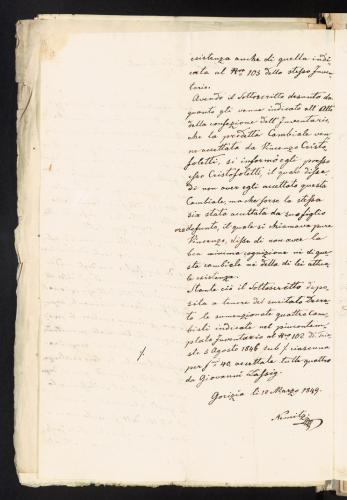 esistenza anche di quella indi-
cata al Nro 103 dello stesso Inven-
tario.
Avendo il Sottoscritto desunto da
quanto gli venne indicato all'Atto
della confezione dell'Inventario,
che la predetta Cambiale ven-
ne accettata da Vincenzo Cristo-
foletti, si informò egli presso
esso Cristofoletti, il quale disse
di non aver egli accettato questa
Cambiale, ma che forse la stessa
sia stata accettata da suo figlio
defunto, il quale si chiamava pure
Vincenzo, disse di non aver la
ben minima cognizione nè di que-
sta cambiale nè della di lei attua-
le esistenza.
Stante ciò il Sottoscritto depo-
sita a tenore del succitato Decre-
to le summenzionate quattro Cam-
biali indicate nel pluricontem-
plato Inventario al Nro 102
5 Agosto 1846 sub / ciascuna
per f 40 accettate tutte quattro
da Giovanni
Gorizia li 12 Marzo 1849.